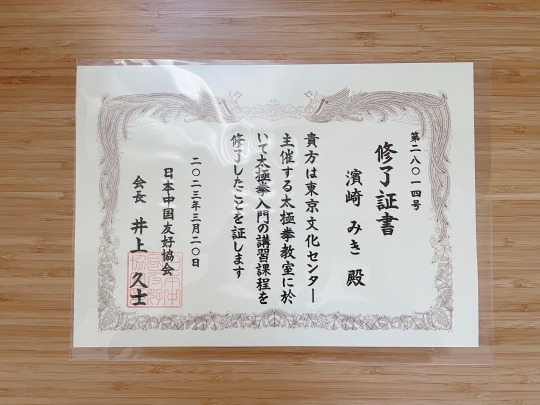 第二八〇一四号
修了証書
濵崎 みき 殿
貴方は東京文化センター
主催する太極拳教室に於
いて太極拳入門の講習課程を
修了したことを証します
二〇二三年三月二〇日
日本中国友好協会
会長 井上 久士